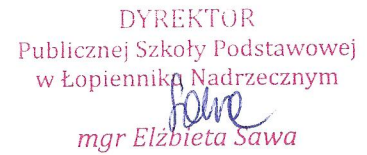 DYREKTOR
Publicznej Szkoły Podstawowej
w Łopienniku Nadrzecznym
Sawa
mgr Elżbieta Sawa